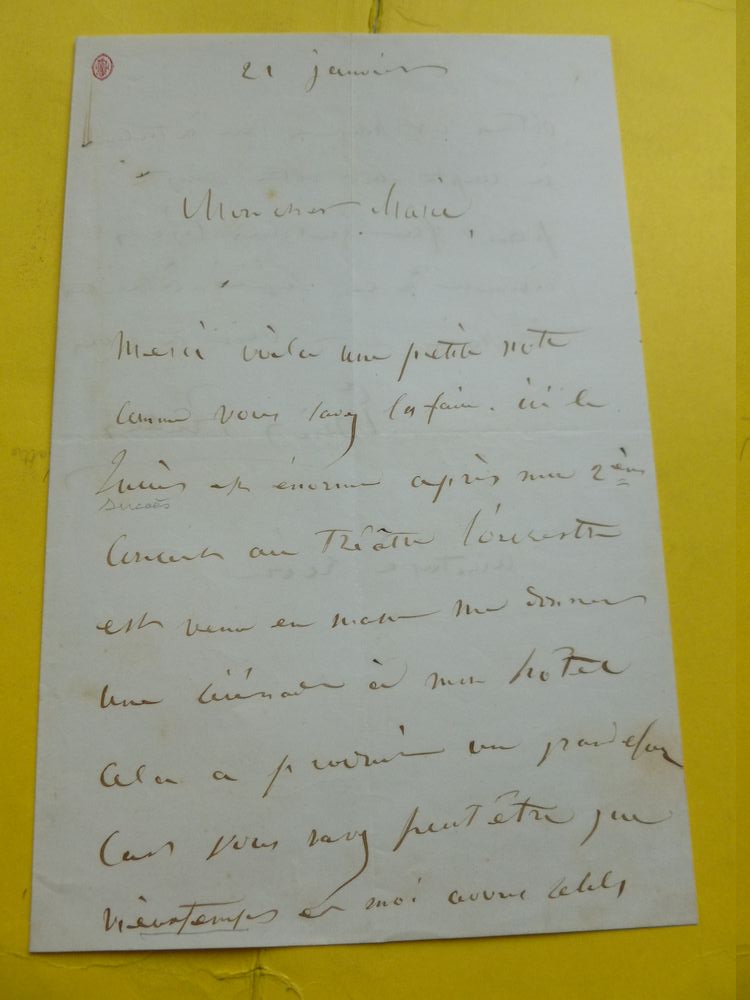 21 janvier
Mon cher Marie
Merci voila une petite note
comme vous savez les faire. ici le
Succès est énorme après mon 2ème
Succès
Concert au Théâtre l'orchestre
est venu en masse me donner
une sérénade à mon hotel
cela a produit un grand
Car vous savez peut être que
vieuxtemps et moi avons